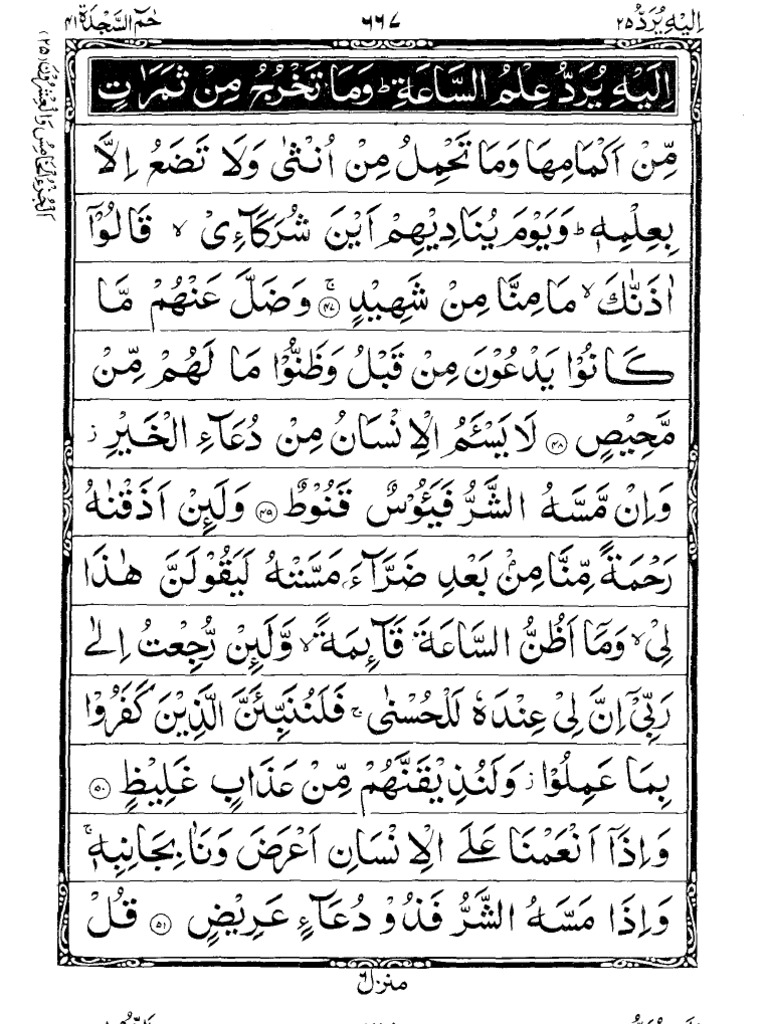 اِلَیْهِ یُرَدُّ ۲۵
۶۶۷
حٰمٓ السَّجْدَة ۴۱
اَلْجُزْءُ الْخَامِسُ وَالْعِشْرُوْنَ (۲۵)
اِلَیْهِ یُرَدُّ عِلْمُ السَّاعَةِ ؕ وَمَا تَخْرُجُ مِنْ ثَمَرٰتٍ
مِّنْ اَكْمَامِهَا وَمَا تَحْمِلُ مِنْ اُنْثٰی وَلَا تَضَعُ اِلَّا
بِعِلْمِهٖ ؕ وَیَوْمَ یُنَادِیْهِمْ اَیْنَ شُرَكَآءِیْ ۙ قَالُوْۤا
اٰذَنّٰكَ ۙ مَا مِنَّا مِنْ شَهِیْدٍ ۚ ﴿۴۷﴾ وَضَلَّ عَنْهُمْ مَّا
كَانُوْا یَدْعُوْنَ مِنْ قَبْلُ وَظَنُّوْا مَا لَهُمْ مِّنْ
مَّحِیْصٍ ﴿۴۸﴾ لَا یَسْـَٔمُ الْاِنْسَانُ مِنْ دُعَآءِ الْخَیْرِ ز
وَاِنْ مَّسَّهُ الشَّرُّ فَیَـُٔوْسٌ قَنُوْطٌ ﴿۴۹﴾ وَلَئِنْ اَذَقْنٰهُ
رَحْمَةً مِّنَّا مِنْۢ بَعْدِ ضَرَّآءَ مَسَّتْهُ لَیَقُوْلَنَّ هٰذَا
لِیْ ۙ وَمَاۤ اَظُنُّ السَّاعَةَ قَآئِمَةً ۙ وَّلَئِنْ رُّجِعْتُ اِلٰی
رَبِّیْۤ اِنَّ لِیْ عِنْدَهٗ لَلْحُسْنٰی ۚ فَلَنُنَبِّئَنَّ الَّذِیْنَ كَفَرُوْا
بِمَا عَمِلُوْا ز وَلَنُذِیْقَنَّهُمْ مِّنْ عَذَابٍ غَلِیْظٍ ﴿۵۰﴾
وَاِذَاۤ اَنْعَمْنَا عَلَی الْاِنْسَانِ اَعْرَضَ وَنَاٰ بِجَانِبِهٖ ۚ
وَاِذَا مَسَّهُ الشَّرُّ فَذُوْ دُعَآءٍ عَرِیْضٍ ﴿۵۱﴾ قُلْ
منزل ۶